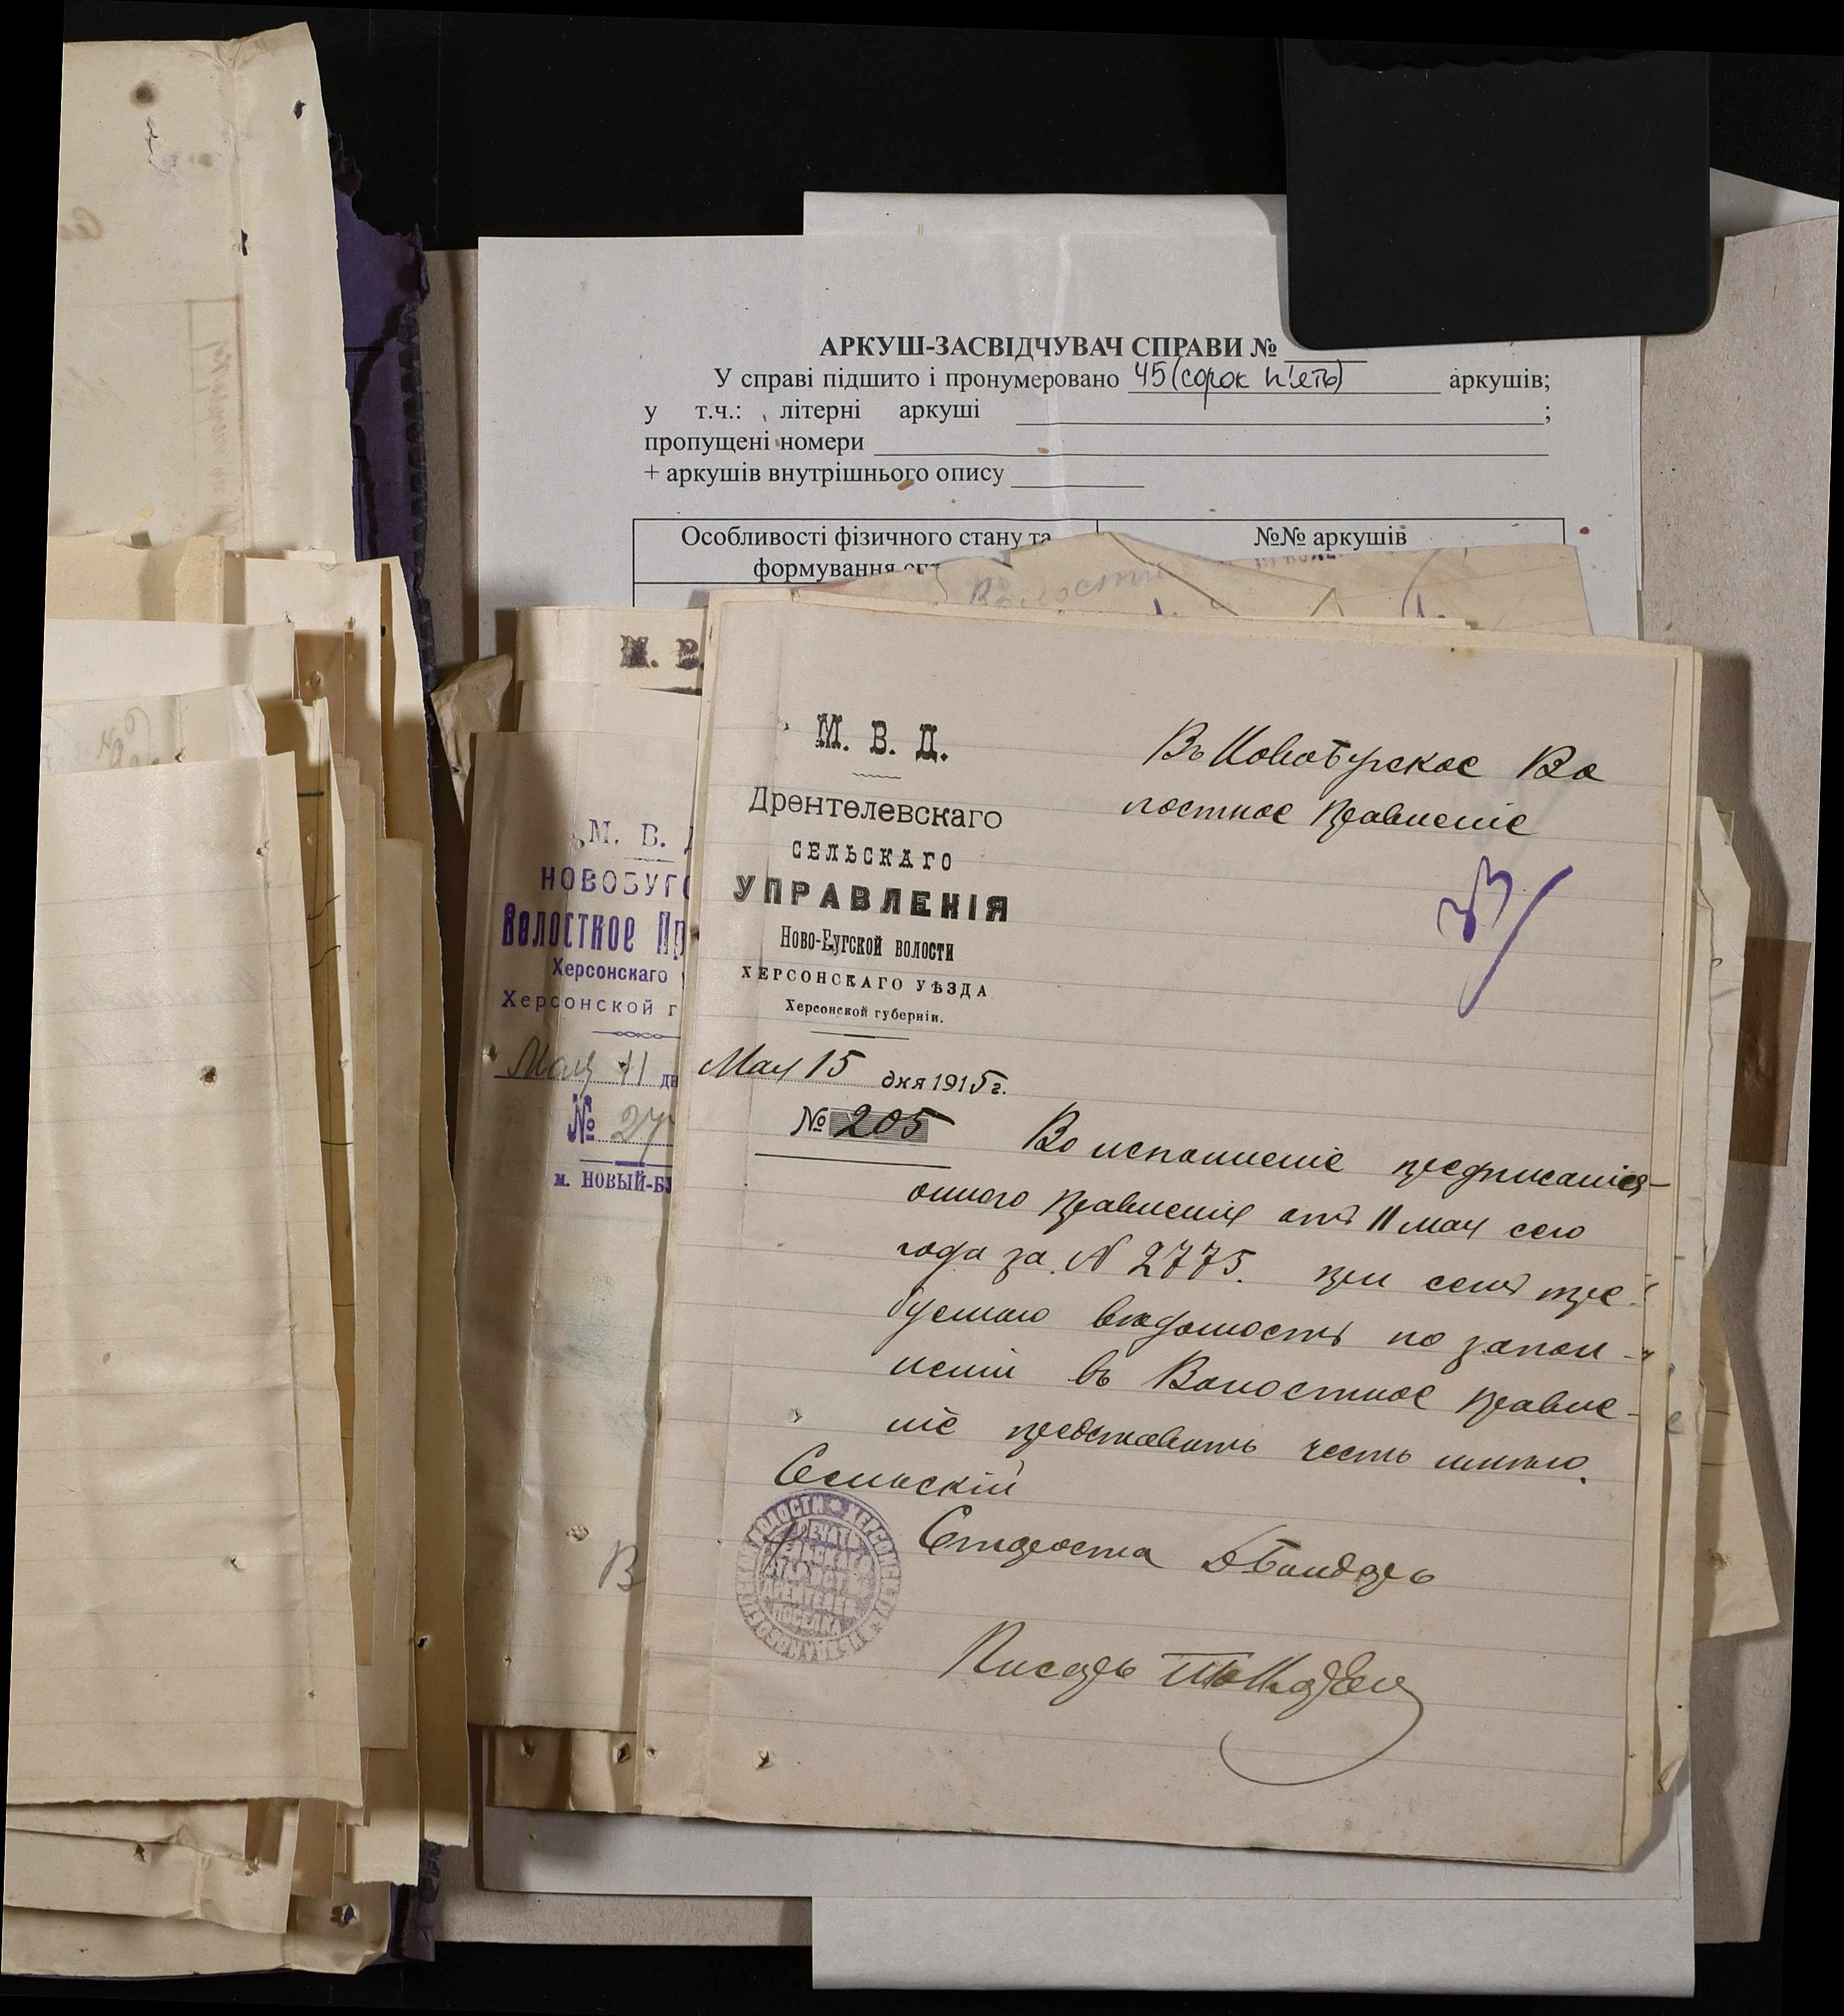 АРКУШ-ЗАСВІДЧУВАЧ СПРАВИ №
У справі підшито і пронумеровано 45 (сорок п'ять) аркушів;
у т.ч.: літерні аркуші ;
пропущені номери
+ аркушів внутрішнього опису
Особливості фізичного стану та
формування
№№ аркушів
Волостн
М. В.
М. В. Д
НОВОБУГ
Волостное Пр
Херсонскаго
Херсонской г
Мая 11 дн
№ 27
м. НОВЫЙ-БУ
В
М. В. Д.
Дрентелевскаго
СЕЛЬСКАГО
УПРАВЛЕНІЯ
Ново-Бугской волости
ХЕРСОНСКАГО УѢЗДА
Херсонской губерніи.
Мая 15 дня 1915 г.
№ 205
Въ Новобугское Во
лостное Правленіе
Во исполненіе предписанія
оного Правленія отъ 11 мая сего
года за N 2775. при семъ тре-
буемаю вѣдомость по запол-
неніи въ Волостное Правле-
ніе представить честь имѣю.
Сельскій
Староста
Писарь